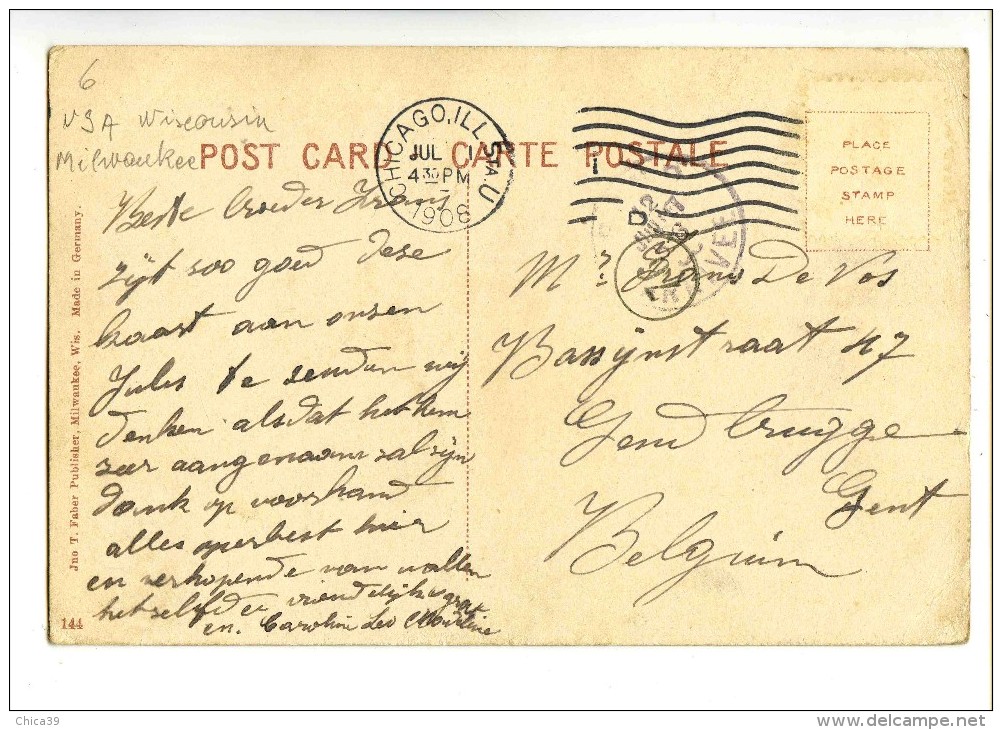 6
USA Wisconsin
Milwaukee
POST CARD CARTE POSTALE
CHICAGO, ILL. STA. U
JUL 1
4 30 PM
1908
PLACE
POSTAGE
STAMP
HERE
Beste broeder Frans
zijt zoo goed deze
kaart aan onzen
Jules te senden wij
denken alsdat het hem
zeer aangenaam sal zijn
dank op voorhand
alles operbest hier
en verhopende van ullen
hetzelfde vriendelijk
en. Caroline Leo
Mr Frans De Vos
Bassijnstraat 47
Gendbrugge
Gent
Belgium
Jno T. Faber Publisher, Milwaukee, Wis. Made in Germany.
144
Chica39
delcampe.net